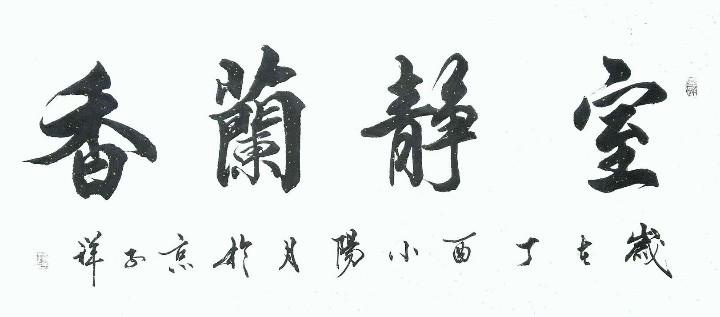 室靜蘭香
歲在丁酉小陽月於京子祥